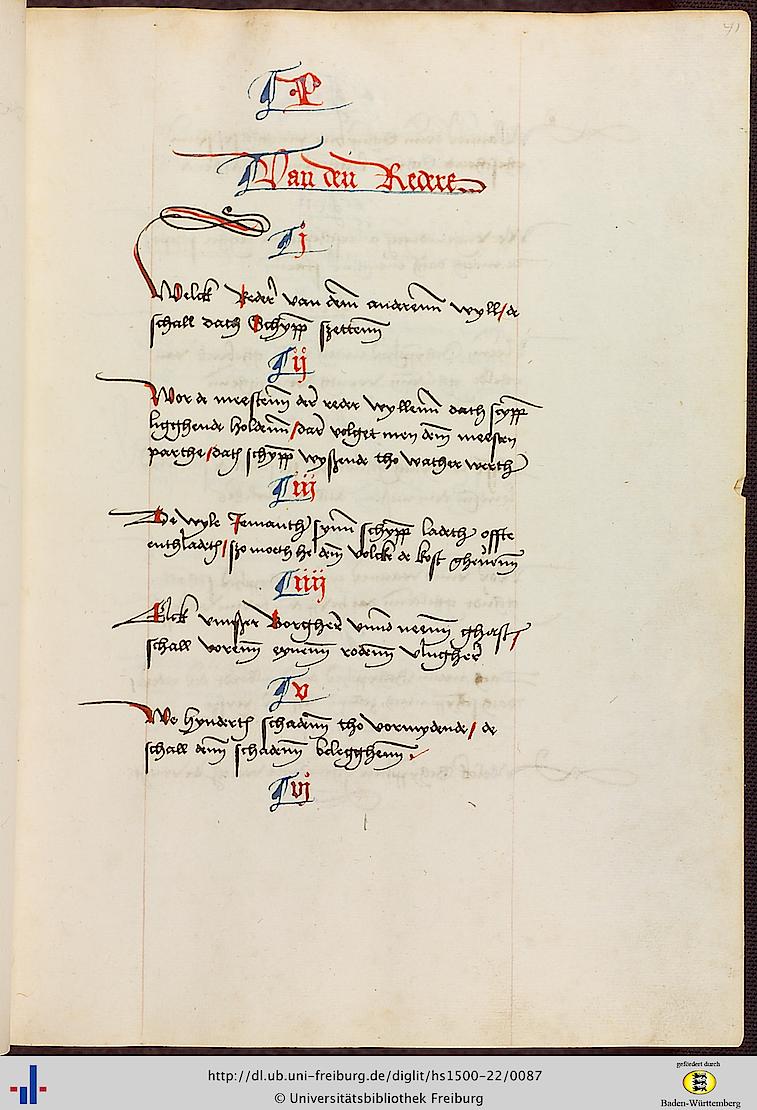 41
P
Van den Redere
j
Welck Reder van dem anderenn wyll / de
schall dath Schypp szettenn
ij
Wor de meestenn der reder wyllenn dath scypp
ligghende holdenn / dar volget men dem meesten
parthe / dath schypp wyszende tho wather werth
iij
De wyle Jemanth synn schypp ladeth offte
enthladeth / szo moeth he dem volcke de kost ghevenn
iiij
Elck unnszer Borgher unnd neenn ghast /
schall vorenn eynenn rodenn vlugher
v
We hynderth schadenn tho vormydende / de
schall denn schadenn belegghenn /
vj
http://dl.ub.uni-freiburg.de/diglit/hs1500-22/0087
© Universitätsbibliothek Freiburg
gefördert durch
Baden-Württemberg